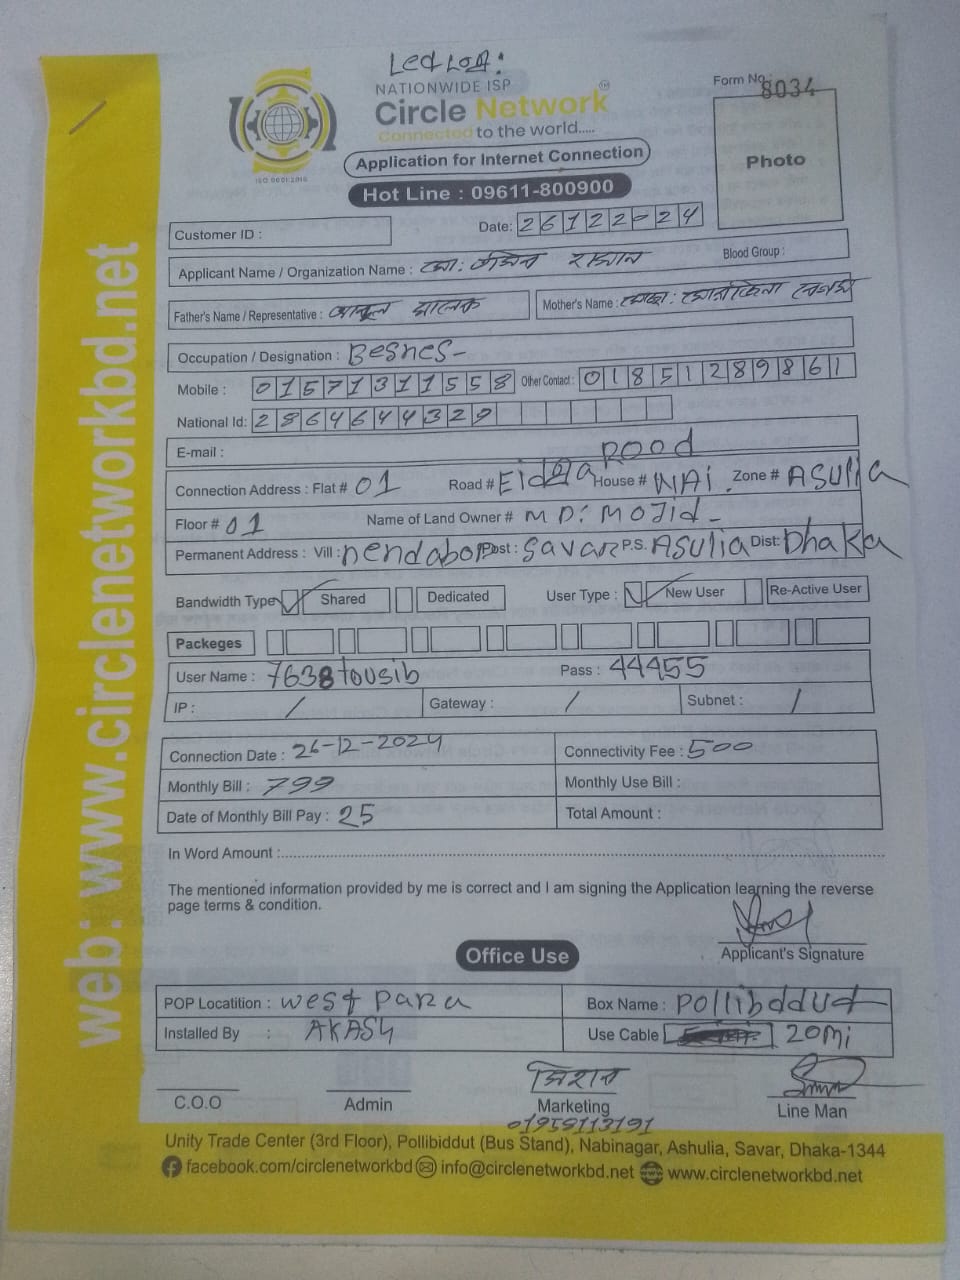 NATIONWIDE ISP
Circle Network
Connected to the world.....
Application for Internet Connection
Hot Line : 09611-800900
Form No.: 8034
Photo
ISO 9001:2015
Customer ID :
Date: 26122024
Applicant Name / Organization Name : মো: তৌসিব হাসান
Blood Group :
Father's Name / Representative : আব্দুল মালেক
Mother's Name : মোছা:
Occupation / Designation : Besnes-
Mobile : 01571311558
Other Contact : 01851289861
National Id: 2864644329
E-mail :
Connection Address : Flat # 01 Road # Eidga Rood House # NAi Zone # ASULia
Floor # 01 Name of Land Owner # MD: MOJid
Permanent Address : Vill : Post : Savar P.S. ASULia Dist: Dhaka
Bandwidth Type Shared Dedicated User Type : New User Re-Active User
Packeges
User Name : 7638tousib Pass : 44455
IP : / Gateway : / Subnet : /
Connection Date : 26-12-2024 Connectivity Fee : 500
Monthly Bill : 799 Monthly Use Bill :
Date of Monthly Bill Pay : 25 Total Amount :
In Word Amount :
The mentioned information provided by me is correct and I am signing the Application learning the reverse
page terms & condition.
Applicant's Signature
Office Use
POP Locatition : West para Box Name : Pollibddut
Installed By : AKASH Use Cable 20mi
C.O.O Admin Marketing Line Man
01959113191
Unity Trade Center (3rd Floor), Pollibiddut (Bus Stand), Nabinagar, Ashulia, Savar, Dhaka-1344
facebook.com/circlenetworkbd info@circlenetworkbd.net www.circlenetworkbd.net
web: www.circlenetworkbd.net